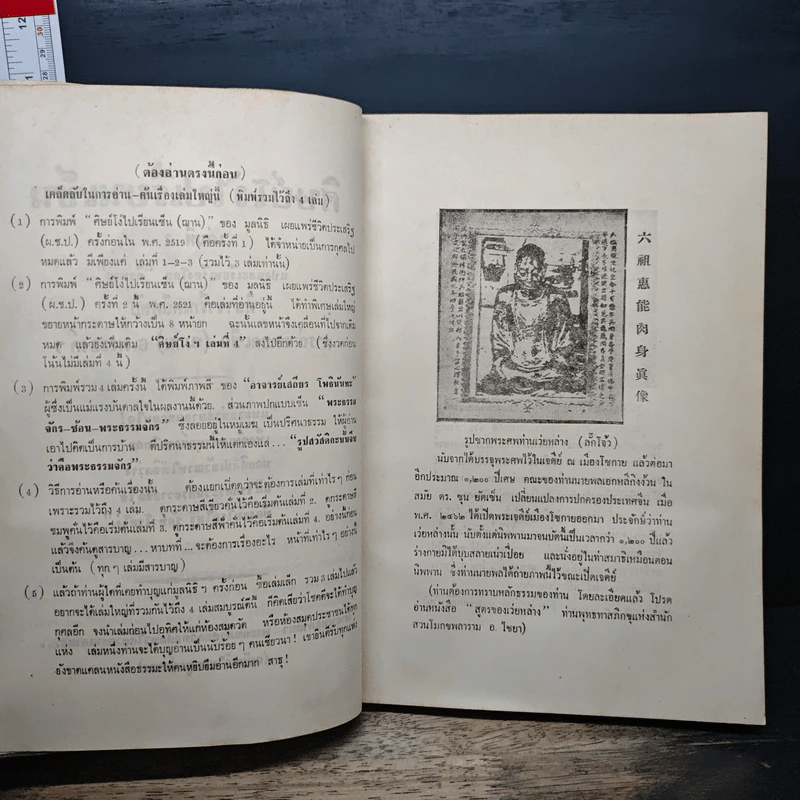 (ต้องอ่านตรงนี้ก่อน)
เคล็ดลับในการอ่าน-ค้นเรื่องเล่มใหญ่นี้ (พิมพ์รวมไว้ถึง 4 เล่ม)
(1) การพิมพ์ "ศิษย์โง่ไปเรียนเซ็น (ฌาน)" ของ มูลนิธิ เผยแพร่ชีวิตประเสริฐ
(ผ.ช.ป.) ครั้งก่อนใน พ.ศ. 2519 (คือครั้งที่ 1) ได้จำหน่ายเป็นการกุศลไป
หมดแล้ว มีเพียงแค่ เล่มที่ 1-2-3 (รวมไว้ 3 เล่มเท่านั้น)
(2) การพิมพ์ "ศิษย์โง่ไปเรียนเซ็น (ฌาน)" ของ มูลนิธิ เผยแพร่ชีวิตประเสริฐ
(ผ.ช.ป.) ครั้งที่ 2 นี้ พ.ศ. 2521 คือเล่มที่อ่านอยู่นี้ ได้ทำพิเศษเล่มใหญ่
ขยายหน้ากระดาษให้กว้างเป็น 8 หน้ายก ฉะนั้นเลขหน้าจึงเคลื่อนที่ไปจากเดิม
หมด แล้วยังเพิ่มเติม "ศิษย์โง่ ๆ เล่มที่ 4" ลงไปอีกด้วย (ซึ่งงวดก่อน
โน้นไม่มีเล่มที่ 4 นี้)
(3) การพิมพ์รวม 4 เล่มครั้งนี้ ได้พิมพ์ภาพสี ของ "อาจารย์เสถียร โพธินันทะ"
ผู้ซึ่งเป็นแม่แรงบันดาลใจในผลงานนี้ด้วย. ส่วนภาพปกแบบเซ็น "พระธรรม
จักร-ซ้อน-พระธรรมจักร" ซึ่งลอยอยู่ในหมู่เมฆ เป็นปริศนาธรรม ให้ผู้อ่าน
เอาไปคิดเป็นการบ้าน ตีปริศนาธรรมนี้ให้แตกเองแล่ ... "รูปสวัสดิกะนั้นจีน
ว่าคือพระธรรมจักร"
(4) วิธีการอ่านหรือค้นเรื่องนั้น ต้องแยกเปิดดูว่าจะต้องการเล่มที่เท่าไร ๆ ก่อน
เพราะรวมไว้ถึง 4 เล่ม. ดูกระดาษสีเขียวคั่นไว้คือเริ่มต้นเล่มที่ 2. ดูกระดาษสี
ชมพูคั่นไว้คือเริ่มต้นเล่มที่ 3. ดูกระดาษสีฟ้าคั่นไว้คือเริ่มต้นเล่มที่ 4. อย่างนี้ก่อน
แล้วจึงค้นดูสารบาญ . . . หาบทที่ ... จะต้องการเรื่องอะไร หน้าที่เท่าไร ๆ อย่างนี้
เป็นต้น (ทุก ๆ เล่มมีสารบาญ)
(5) แล้วถ้าท่านผู้ใดที่เคยทำบุญแก่มูลนิธิ ฯ ครั้งก่อน ซื้อเล่มเล็ก รวม 3 เล่มไปแล้ว
อยากจะได้เล่มใหญ่ที่รวมกันไว้ถึง 4 เล่มสมบูรณ์ดีนี้ ก็คิดเสียว่าโชคดีจะได้ทำบุญ
กุศลอีก จงนำเล่มก่อนไปอุทิศให้แก่ห้องสมุดวัด หรือห้องสมุดประชาชนได้ทุก
แห่ง เล่มหนึ่งท่านจะได้บุญอ่านเป็นนับร้อย ๆ คนเชียวนา ! เขายินดีรับทุกแห่ง
ยังขาดแคลนหนังสือธรรมะให้คนหยิบยืมอ่านอีกมาก สาธุ !
六祖惠能肉身眞像
รูปซากพระศพท่านเว่ยหล่าง (ลั๊กโจ๊ว)
นับจากได้บรรจุพระศพไว้ในเจดีย์ ณ เมืองโชกาย แล้วต่อมา
อีกประมาณ ๑,๒๐๐ ปีเศษ คณะของท่านนายพลเอกหลีกงง้วน ใน
สมัย ดร. ซุน ยัดเซ็น เปลี่ยนแปลงการปกครองประเทศจีน เมื่อ
พ.ศ. ๒๔๖๒ ได้เปิดพระเจดีย์เมืองโชกายออกมา ประจักษ์ว่าท่าน
เว่ยหล่างนั้น นับตั้งแต่นิพพานมาจนบัดนี้เป็นเวลากว่า ๑,๒๐๐ ปีแล้ว
ร่างกายมิได้บุบสลายเน่าเปื่อย และนั่งอยู่ในท่าสมาธิเหมือนตอน
นิพพาน ซึ่งท่านนายพลได้ถ่ายภาพนี้ไว้ขณะเปิดเจดีย์
(ท่านต้องการทราบหลักธรรมของท่าน โดยละเอียดแล้ว โปรด
อ่านหนังสือ "สูตรของเว่ยหล่าง" ท่านพุทธทาสภิกขุแห่งสำนัก
สวนโมกขพลาราม อ. ไชยา)